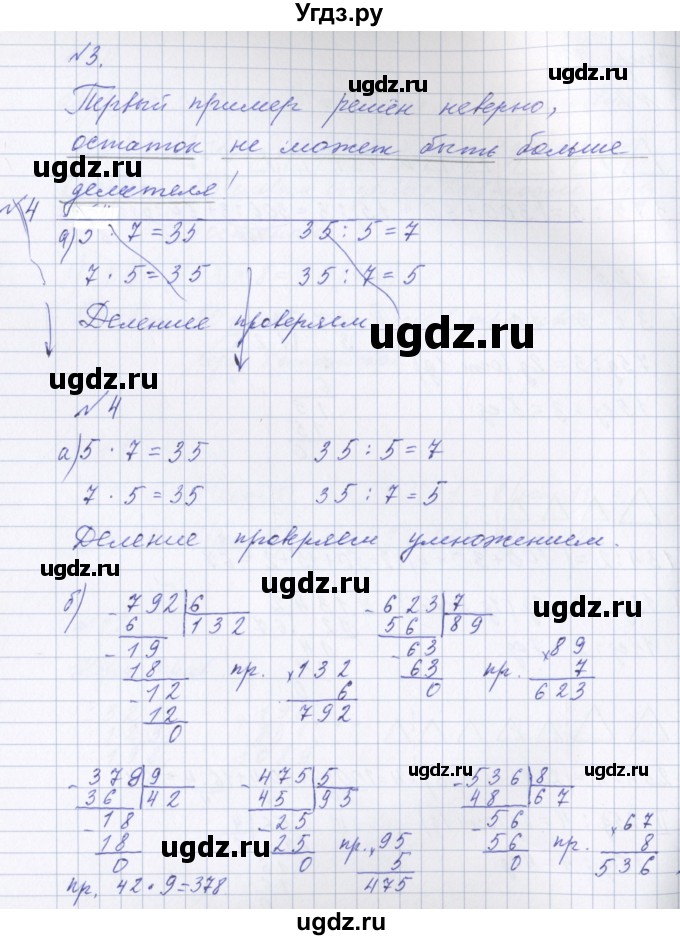 Угдз.ру
№3.
ugdz.ru
ugdz.ru
Первый пример решён неверно,
остаток не может быть больше
ugdz.ru
делителя!
№4
а) 5 · 7 = 35 35 : 5 = 7
7 · 5 = 35 35 : 7 = 5
Деление проверяем
ugdz.ru
ugdz.ru
№4
а) 5 · 7 = 35 35 : 5 = 7
7 · 5 = 35 35 : 7 = 5
Деление проверяем умножением.
ugdz.ru
ugdz.ru
ugdz.ru
б) - 792 | 6 - 623 | 7
6 132 56 89
- 19 - 63 × 89
18 пр. × 132 63 пр. 7
- 12 6 0 623
12 792
0
ugdz.ru ugdz.ru
- 378 | 9 - 475 | 5 - 536 | 8
36 42 45 95 48 67
- 18 - 25 - 56 × 67
ugdz.ru
18 25 пр. × 95 56 пр. 8
0 0 5 0 536
ugdz.ru
пр. 42 · 9 = 378 475
ugdz.ru
ugdz.ru
ugdz.ru